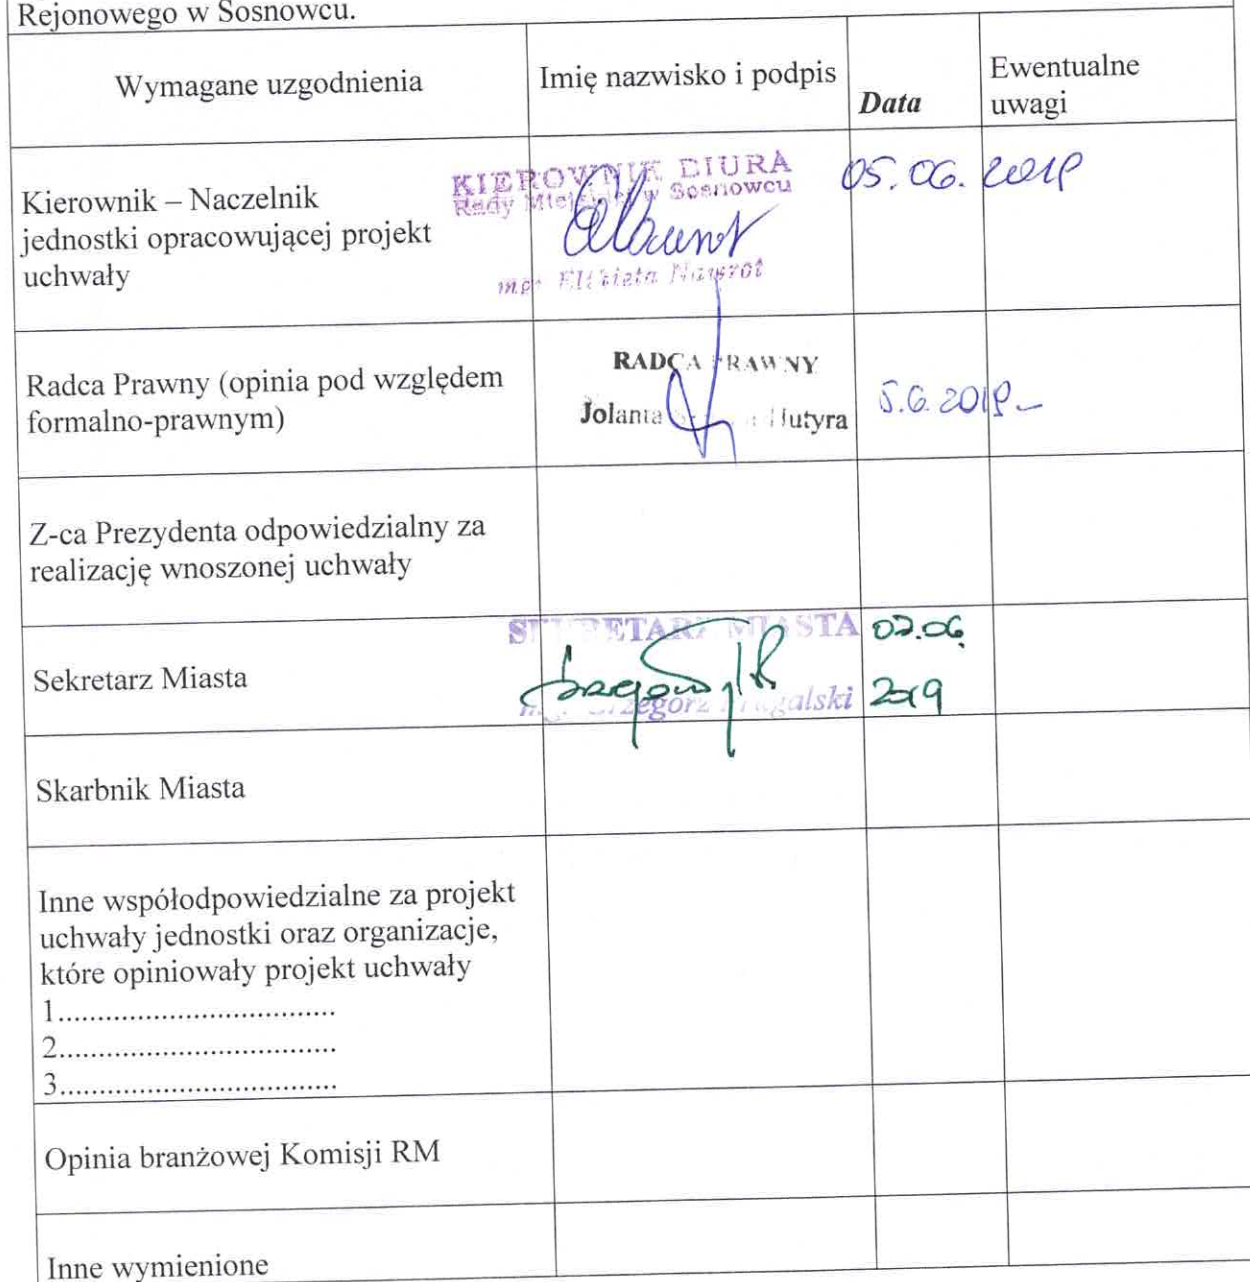 Rejonowego w Sosnowcu.
Wymagane uzgodnienia
Imię nazwisko i podpis
Data
Ewentualne
uwagi
Kierownik – Naczelnik
jednostki opracowującej projekt
uchwały
KIEROWNIK BIURA
Rady Miejskiej w Sosnowcu
mgr Elżbieta Nawrot
05.06.2019
Radca Prawny (opinia pod względem
formalno-prawnym)
RADCA PRAWNY
Jolanta Hutyra
5.6.2019
Z-ca Prezydenta odpowiedzialny za
realizację wnoszonej uchwały
Sekretarz Miasta
SEKRETARZ MIASTA
mgr Grzegorz
07.06.
2019
Skarbnik Miasta
Inne współodpowiedzialne za projekt
uchwały jednostki oraz organizacje,
które opiniowały projekt uchwały
1..................................
2..................................
3..................................
Opinia branżowej Komisji RM
Inne wymienione